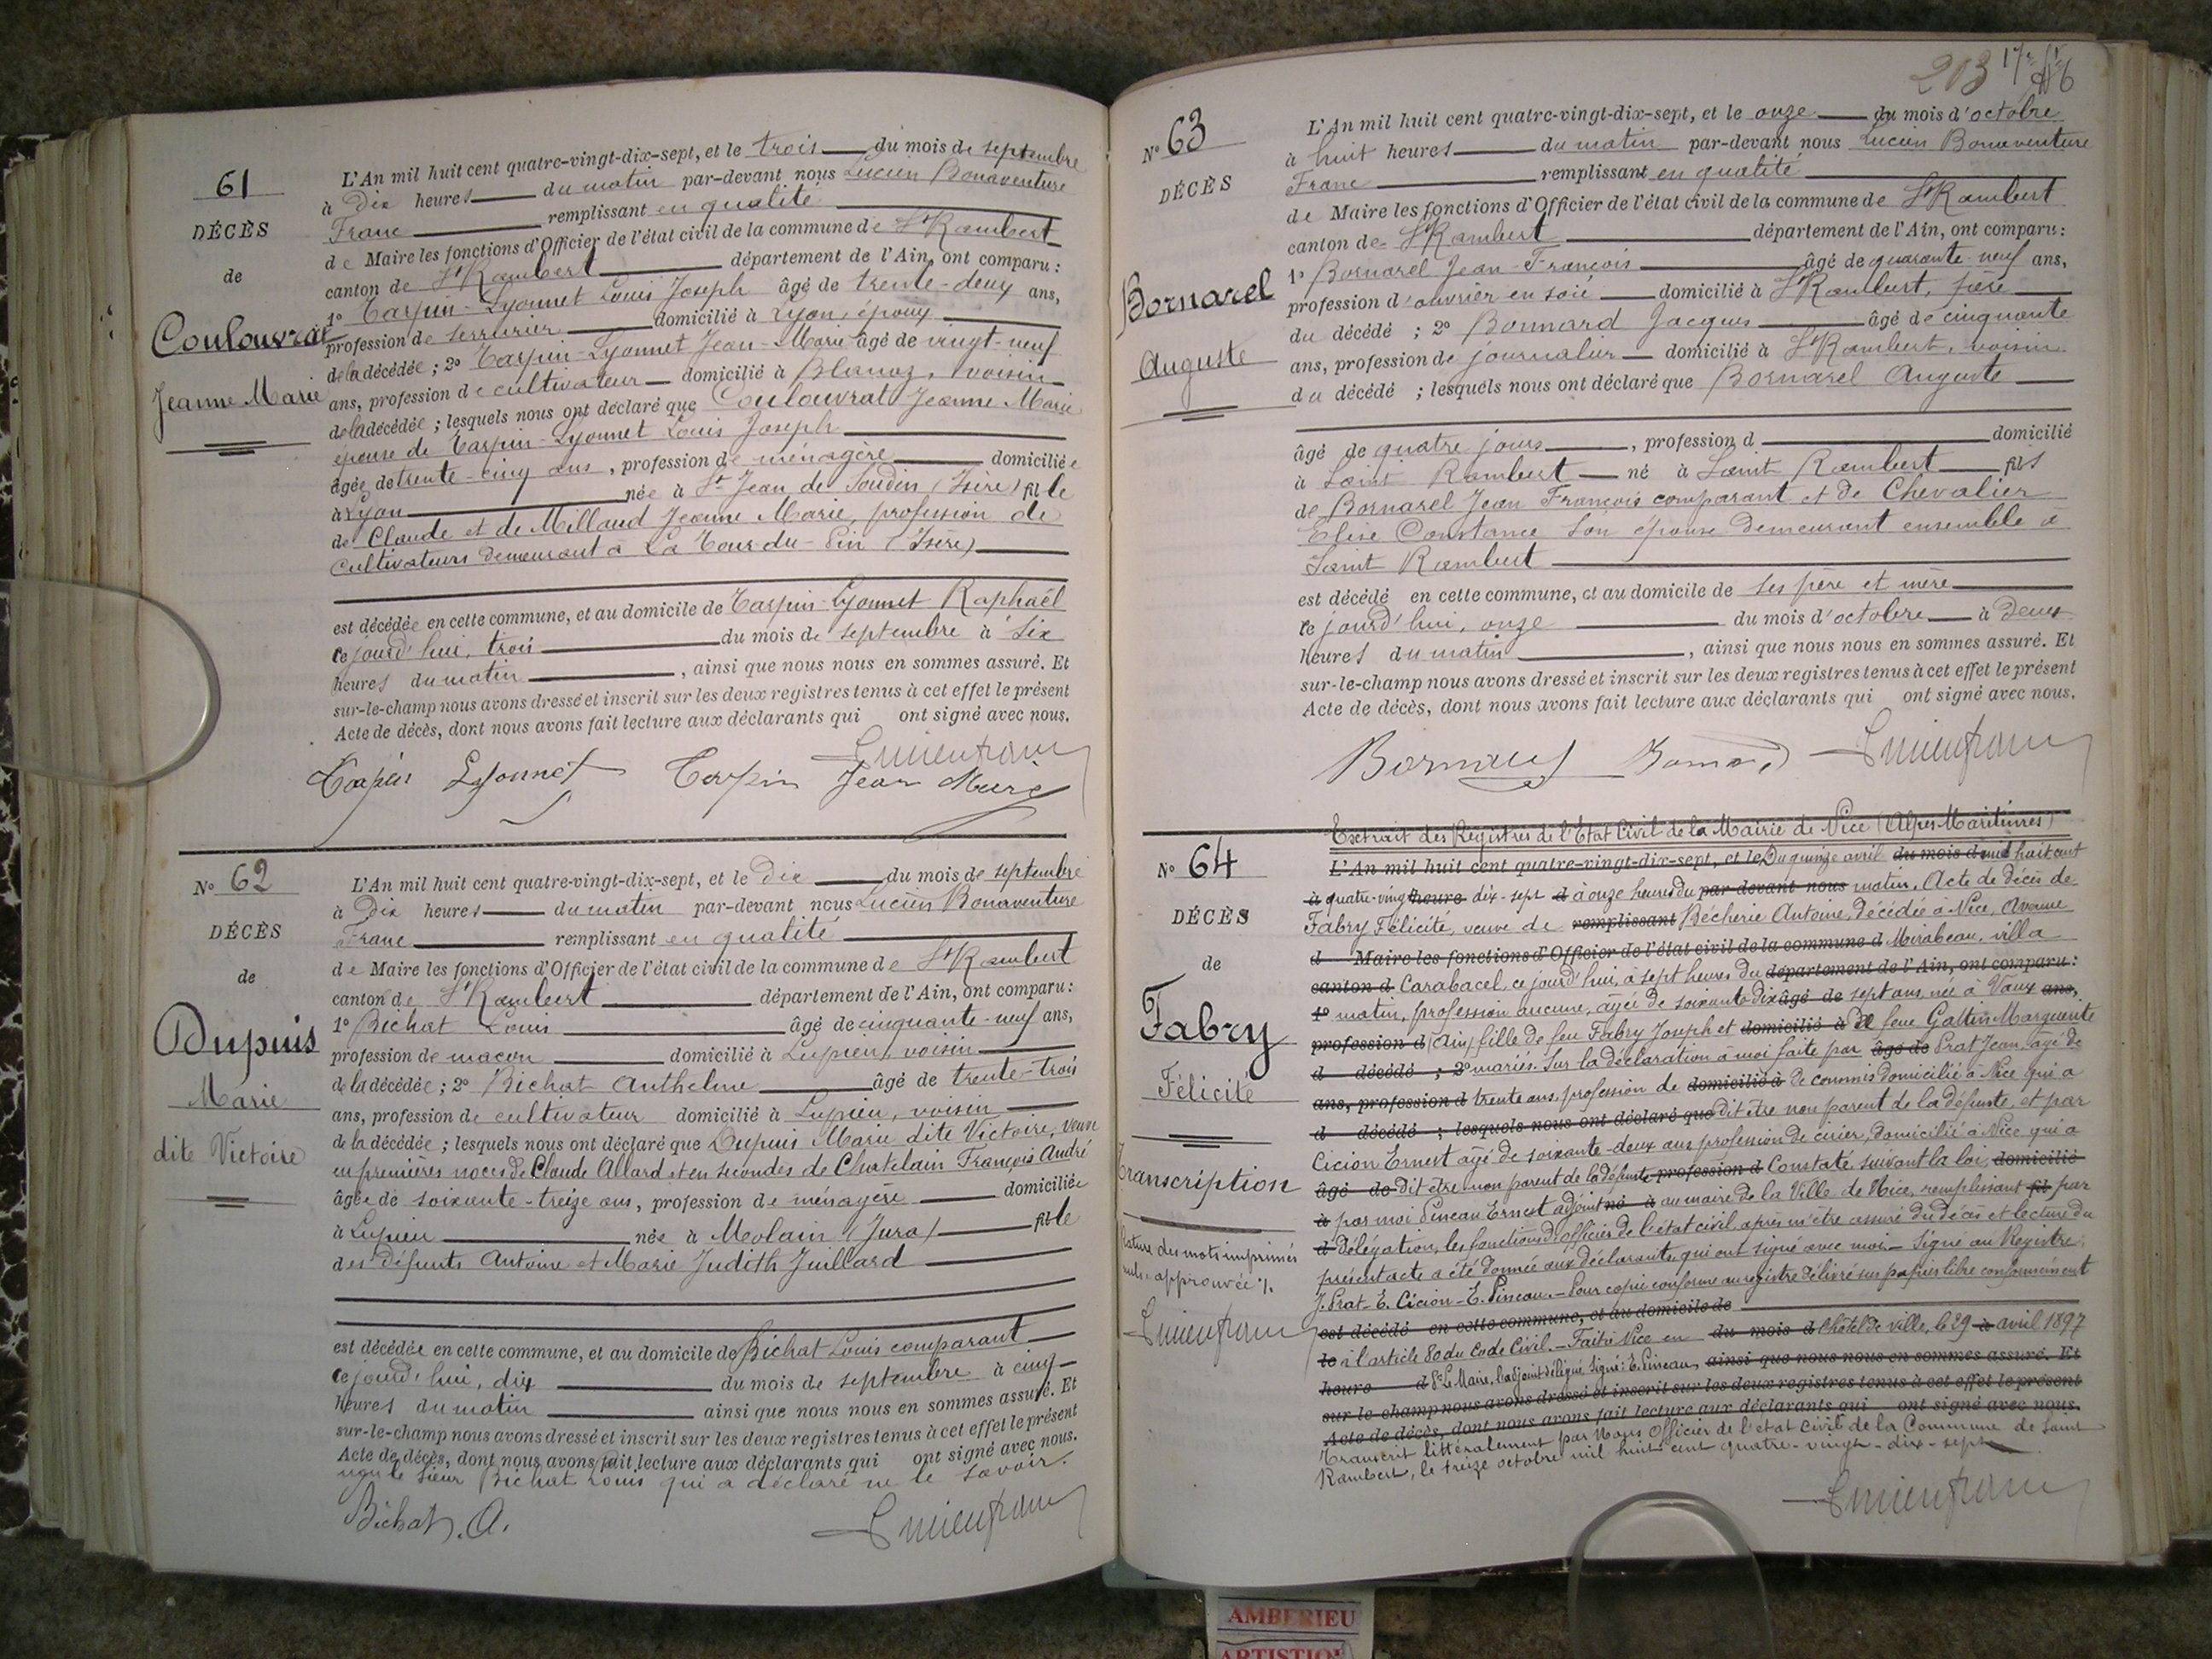 61
DÉCÈS
de
Coulouvrat
Jeanne Marie
L'An mil huit cent quatre-vingt-dix-sept, et le trois du mois de septembre
à Dix heures du matin par-devant nous Lucien Bonaventure
Franc remplissant en qualité
de Maire les fonctions d'Officier de l'état civil de la commune de St Rambert
canton de St Rambert département de l'Ain, ont comparu :
1° Tarpin-Lyonnet Louis Joseph âgé de trente-deux ans,
profession de serrurier domicilié à Lyon, époux
de la décédée ; 2° Tarpin-Lyonnet Jean-Marie âgé de vingt-neuf
ans, profession de cultivateur domicilié à Blanaz, voisin
de la décédée ; lesquels nous ont déclaré que Coulouvrat Jeanne Marie
épouse de Tarpin-Lyonnet Louis Joseph
âgée de trente-cinq ans, profession de ménagère domiciliée
à Lyon née à St Jean de Soudin (Isère) fille
de Claude et de Millaud Jeanne Marie, profession de
cultivateurs demeurant à La Tour-du-Pin (Isère)
est décédée en cette commune, et au domicile de Tarpin-Lyonnet Raphaël
ce jourd'hui, trois du mois de septembre à six
heures du matin, ainsi que nous nous en sommes assuré. Et
sur-le-champ nous avons dressé et inscrit sur les deux registres tenus à cet effet le présent
Acte de décès, dont nous avons fait lecture aux déclarants qui ont signé avec nous.
Tarpin Lyonnet Tarpin Jean Marie
N° 62
DÉCÈS
de
Dupuis
Marie
dite Victoire
L'An mil huit cent quatre-vingt-dix-sept, et le dix du mois de septembre
à Dix heures du matin par-devant nous Lucien Bonaventure
Franc remplissant en qualité
de Maire les fonctions d'Officier de l'état civil de la commune de St Rambert
canton de St Rambert département de l'Ain, ont comparu :
1° Bichat Louis âgé de cinquante-neuf ans,
profession de maçon domicilié à Lupieu, voisin
de la décédée ; 2° Bichat Anthelme âgé de trente-trois
ans, profession de cultivateur domicilié à Lupieu, voisin
de la décédée ; lesquels nous ont déclaré que Dupuis Marie dite Victoire, veuve
en premières noces de Claude Allard et en secondes de Chatelain François André
âgée de soixante-treize ans, profession de ménagère domiciliée
à Lupieu née à Molain (Jura) fille
des défunts Antoine et Marie Judith Juillard
est décédée en cette commune, et au domicile de Bichat Louis comparant
ce jourd'hui, dix du mois de septembre à cinq
heures du matin ainsi que nous nous en sommes assuré. Et
sur-le-champ nous avons dressé et inscrit sur les deux registres tenus à cet effet le présent
Acte de décès, dont nous avons fait lecture aux déclarants qui ont signé avec nous.
le sieur Bichat Louis qui a déclaré ne le savoir.
Bichat. A.
213
N° 63
DÉCÈS
Bornarel
Auguste
L'An mil huit cent quatre-vingt-dix-sept, et le onze du mois d'octobre
à huit heures du matin par-devant nous Lucien Bonaventure
Franc remplissant en qualité
de Maire les fonctions d'Officier de l'état civil de la commune de St Rambert
canton de St Rambert département de l'Ain, ont comparu :
1° Bornarel Jean-François âgé de quarante-neuf ans,
profession d'ouvrier en soie domicilié à St Rambert, père
du décédé ; 2° Bonnard Jacques âgé de cinquante
ans, profession de journalier domicilié à St Rambert, voisin
du décédé ; lesquels nous ont déclaré que Bornarel Auguste
âgé de quatre jours, profession d domicilié
à Saint Rambert né à Saint Rambert fils
de Bornarel Jean François comparant et de Chevalier
Elise Constance son épouse demeurant ensemble à
Saint Rambert
est décédé en cette commune, et au domicile de ses père et mère
ce jourd'hui, onze du mois d'octobre à deux
heures du matin, ainsi que nous nous en sommes assuré. Et
sur-le-champ nous avons dressé et inscrit sur les deux registres tenus à cet effet le présent
Acte de décès, dont nous avons fait lecture aux déclarants qui ont signé avec nous.
N° 64
DÉCÈS
de
Fabry
Félicité
Transcription
Rature des mots imprimés
nuls approuvée
Extrait des Registres de l'Etat Civil de la Mairie de Nice (Alpes-Maritimes)
L'An mil huit cent quatre-vingt-dix-sept, et le Du quinze avril du mois d mil huit cent
à quatre-vingt heure dix-sept d à onze heures du par-devant nous matin. Acte de décès de
Fabry Félicité, veuve de remplissant Bécherie Antoine, décédée à Nice, Avenue
d Maire les fonctions d'Officier de l'état civil de la commune d Mirabeau, villa
canton d Carabacel, ce jourd'hui, à sept heures du département de l'Ain, ont comparu :
1° matin, profession aucune, âgée de soixante-dix âgé de sept ans, née à Vaux ans,
profession d (Ain) fille de feu Fabry Joseph et domicilié à de feue Gattin Marguerite
d décédé ; 2° mariés. Sur la déclaration à moi faite par âgé de Prat Jean, âgé de
ans, profession d trente ans, profession de domicilié à de commis domicilié à Nice qui a
d décédé ; lesquels nous ont déclaré que dit être non parent de la défunte, et par
Cicion Ernest âgé de soixante-deux ans profession de cirier, domicilié à Nice qui a
âgé de dit être non parent de la défunte profession d Constaté, suivant la loi, domicilié
à par moi Pineau Ernest adjoint né à au maire de la Ville de Nice, remplissant fil par
d délégation, les fonctions d'officier de l'état civil, après m'être assuré du décès et lecture du
présent acte a été donnée aux déclarants, qui ont signé avec moi. Signé au Registre.
J. Prat - E. Cicion - E. Pineau. - Pour copie conforme au registre délivré sur papier libre conformément
est décédé en cette commune, et au domicile de
le à l'article 80 du Code Civil. - Fait à Nice en du mois d l'hôtel de ville, le 29 à avril 1897
heure d Pr Le Maire, l'adjoint délégué, signé : E. Pineau, ainsi que nous nous en sommes assuré. Et
sur-le-champ nous avons dressé et inscrit sur les deux registres tenus à cet effet le présent
Acte de décès, dont nous avons fait lecture aux déclarants qui ont signé avec nous.
Transcrit littéralement par Nous Officier de l'état civil de la Commune de Saint
Rambert, le treize octobre mil huit cent quatre-vingt-dix-sept
AMBERIEU